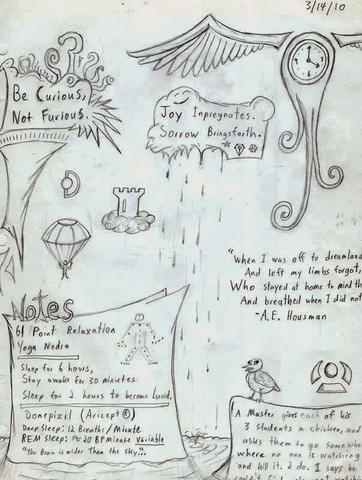 3/14/10
Be Curious,
Not Furious.
Joy Inpregnates.
Sorrow Bringsforth.
"When I was off to dreamland
And left my limbs forgot,
Who stayed at home to mind th
And breathed when I did not
-A.E. Housman
Notes
61 Point Relaxation
Yoga Nedra
Sleep for 6 hours,
Stay awake for 30 minutes
Sleep for 2 hours to become Lucid.
Donepizil (Aricept ®)
Deep Sleep: 12 Breaths/Minute
REM sleep: ≈ 20 BPminute Variable
"The Brain is wider Than the sky"...
A Master gives each of his
3 students a chicken, and
asks them to go Somewhe
where no one is watching
and kill it. 2 do. 1 says he